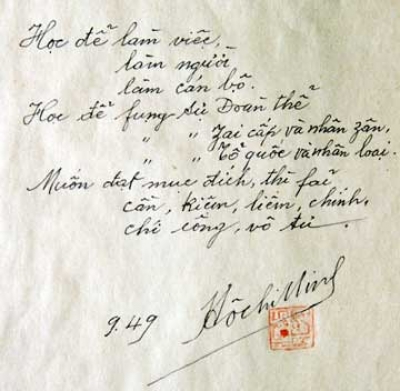 Học để làm việc,
làm người
làm cán bộ.
Học để fụng sự Đoàn thể
" " zai cấp và nhân zân,
" " Tổ quốc và nhân loại.
Muốn đạt mục đích, thì fải
cần, kiệm, liêm, chính,
chí công, vô tư.
9.49 Hồ Chí Minh